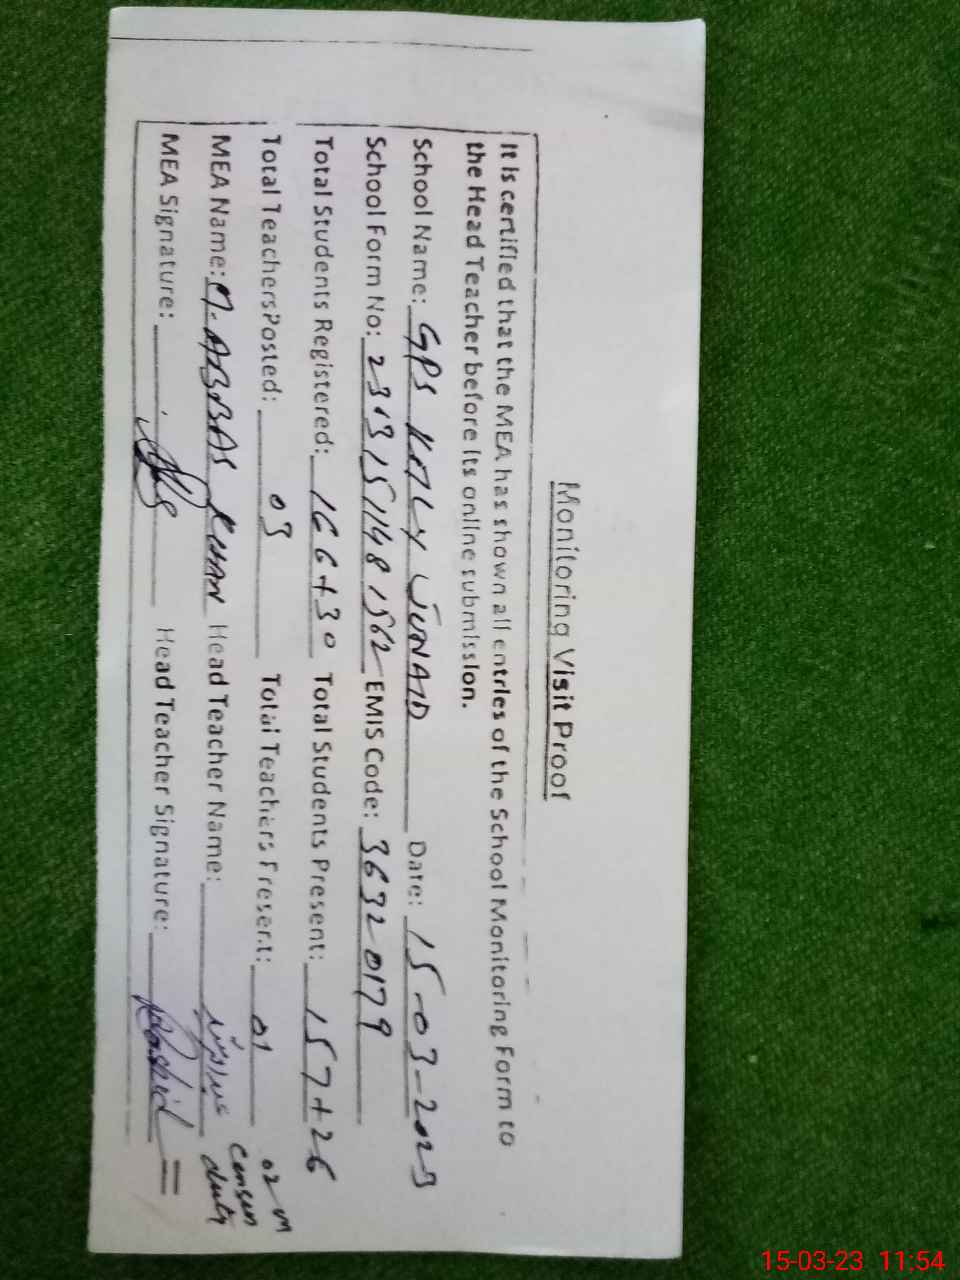 Monitoring Visit Proof
It is certified that the MEA has shown all entries of the School Monitoring Form to
the Head Teacher before its online submission.
School Name: GPS KOTLY JUNAID Date: 15-03-2023
School Form No: EMIS Code: 36320179
Total Students Registered: 166+30 Total Students Present: 157+26
Total Teachers Posted: 03 Total Teachers Present: 01 02 on
census
duty
MEA Name: M. ABBAS KHAN Head Teacher Name:
MEA Signature: Head Teacher Signature: Rashid
15-03-23 11:54